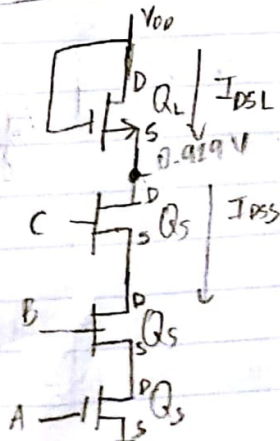 VDD
D
QL
IDSL
S
0.919 V
D
C
QS
IDSS
S
D
B
QS
S
D
A
QS
S